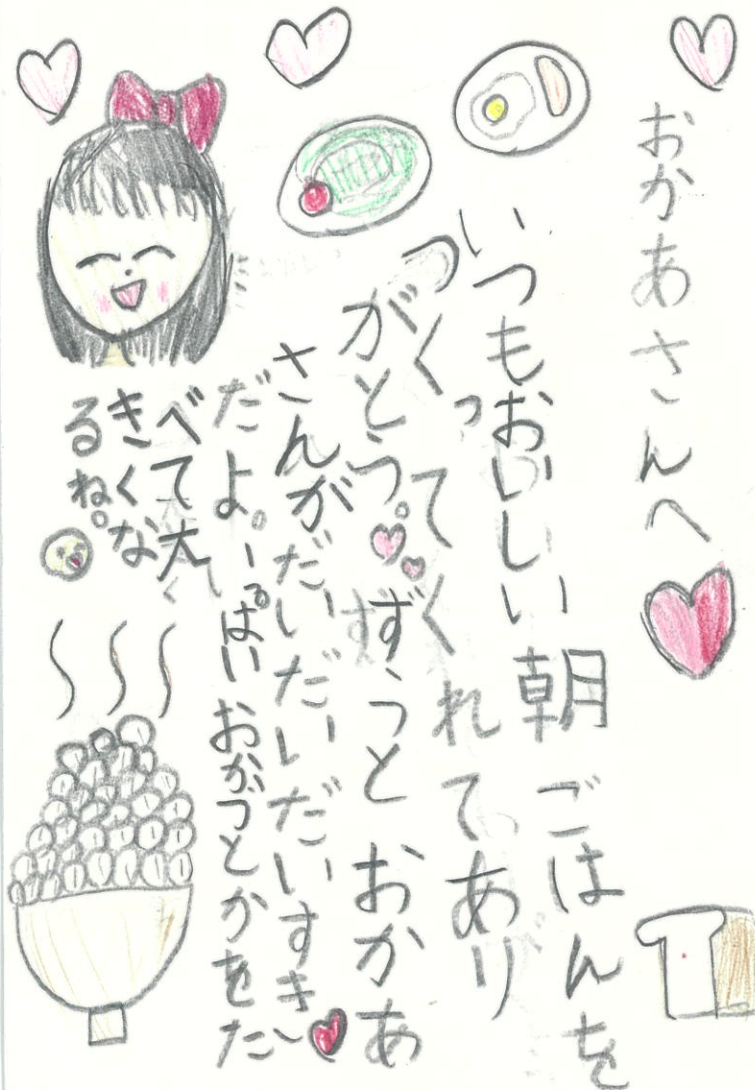 おかあさんへ
いつもおいしい朝ごはんを
つくってくれてあり
がとう。ずうっとおかあ
さんがだいだいだいだいすき
だよ。いっぱいおかづとかをた
べて大きくな
るね。